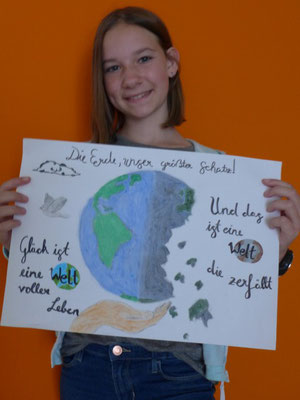 Die Erde, unser größter Schatz!
Glück ist
eine Welt
voller
Leben
Und das
ist eine
Welt
die zerfällt